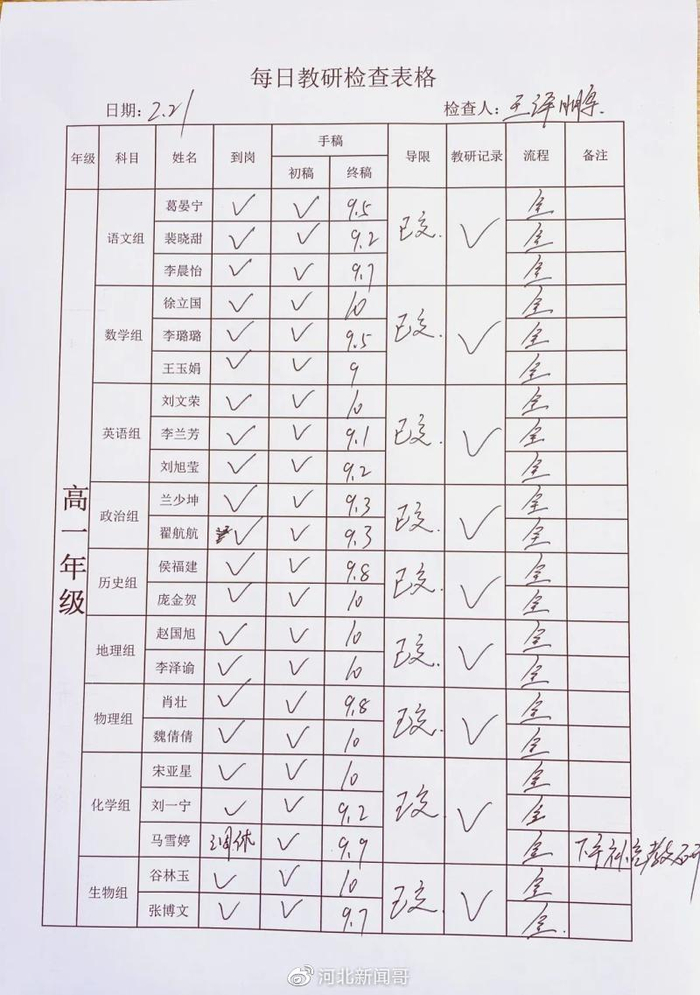 每日教研检查表格
日期: 2.21 检查人: 王泽鹏
年级 科目 姓名 到岗 手稿 导限 教研记录 流程 备注
初稿 终稿
高一年级
语文组 葛晏宁 ✓ ✓ 9.5 已交. ✓ 全
裴晓甜 ✓ ✓ 9.2 全
李晨怡 ✓ ✓ 9.7 全
数学组 徐立国 ✓ ✓ 10 已交. ✓ 全
李璐璐 ✓ ✓ 9.5 全
王玉娟 ✓ ✓ 9 全
英语组 刘文荣 ✓ ✓ 10 已交. ✓ 全
李兰芳 ✓ ✓ 9.1 全
刘旭莹 ✓ ✓ 9.2 全
政治组 兰少坤 ✓ ✓ 9.3 已交. ✓ 全
翟航航 ✓ ✓ 9.3 全
历史组 侯福建 ✓ ✓ 9.8 已交. ✓ 全
庞金贺 ✓ ✓ 10 全
地理组 赵国旭 ✓ ✓ 10 已交. ✓ 全
李泽谕 ✓ ✓ 10 全
物理组 肖壮 ✓ ✓ 9.8 已交. ✓ 全
魏倩倩 ✓ ✓ 10 全
化学组 宋亚星 ✓ ✓ 10 已交. ✓ 全
刘一宁 ✓ ✓ 9.2 全
马雪婷 调休 ✓ 9.9 全 下午补查教研
生物组 谷林玉 ✓ ✓ 10 已交. ✓ 全
张博文 ✓ ✓ 9.7 全.
河北新闻哥